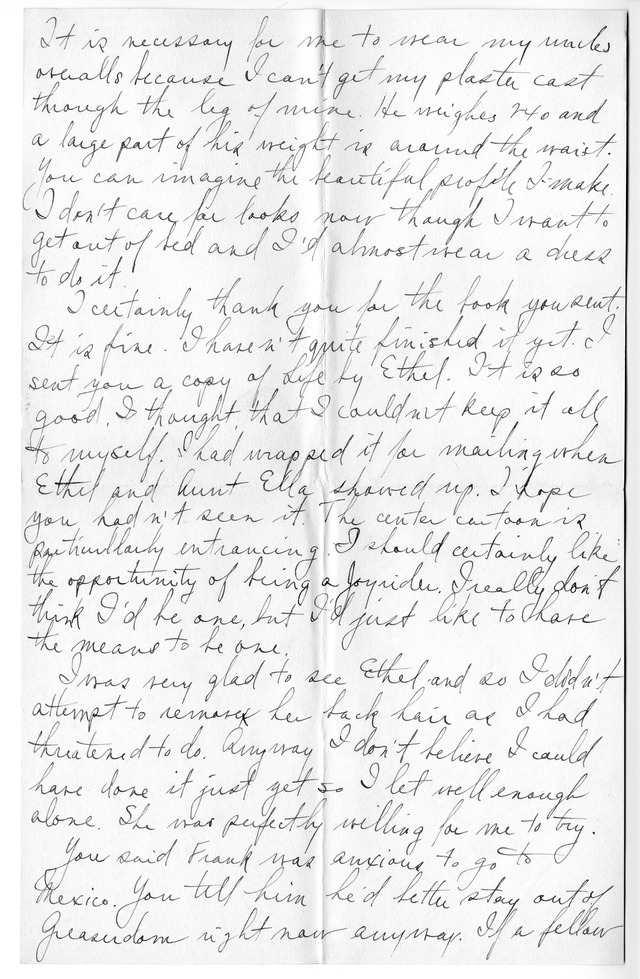 It is necessary for me to wear my uncles
overalls because I can't get my plaster cast
through the leg of mine. He weighes 240 and
a large part of his weight is around the waist.
You can imagine the beautiful profile I make.
I don't care for looks now though I want to
get out of bed and I'd almost wear a dress
to do it.
I certainly thank you for the book you sent.
It is fine. I haven't quite finished it yet. I
sent you a copy of Life by Ethel. It is so
good, I thought that I couldn't keep it all
to myself. I had wrapped it for mailing when
Ethel and Aunt Ella showed up. I hope
you hadn't seen it. The center cartoon is
particullarly entrancing. I should certainly like
the opportunity of being a Joyrider. I really don't
think I'd be one, but I'd just like to have
the means to be one.
I was very glad to see Ethel and so I didn't
attempt to remove her back hair as I had
threatened to do. Anyway I don't believe I could
have done it just yet so I let well enough
alone. She was perfectly willing for me to try.
You said Frank was anxious to go to
Mexico. You tell him he'd better stay out of
Greaserdom right now anyway. If a fellow